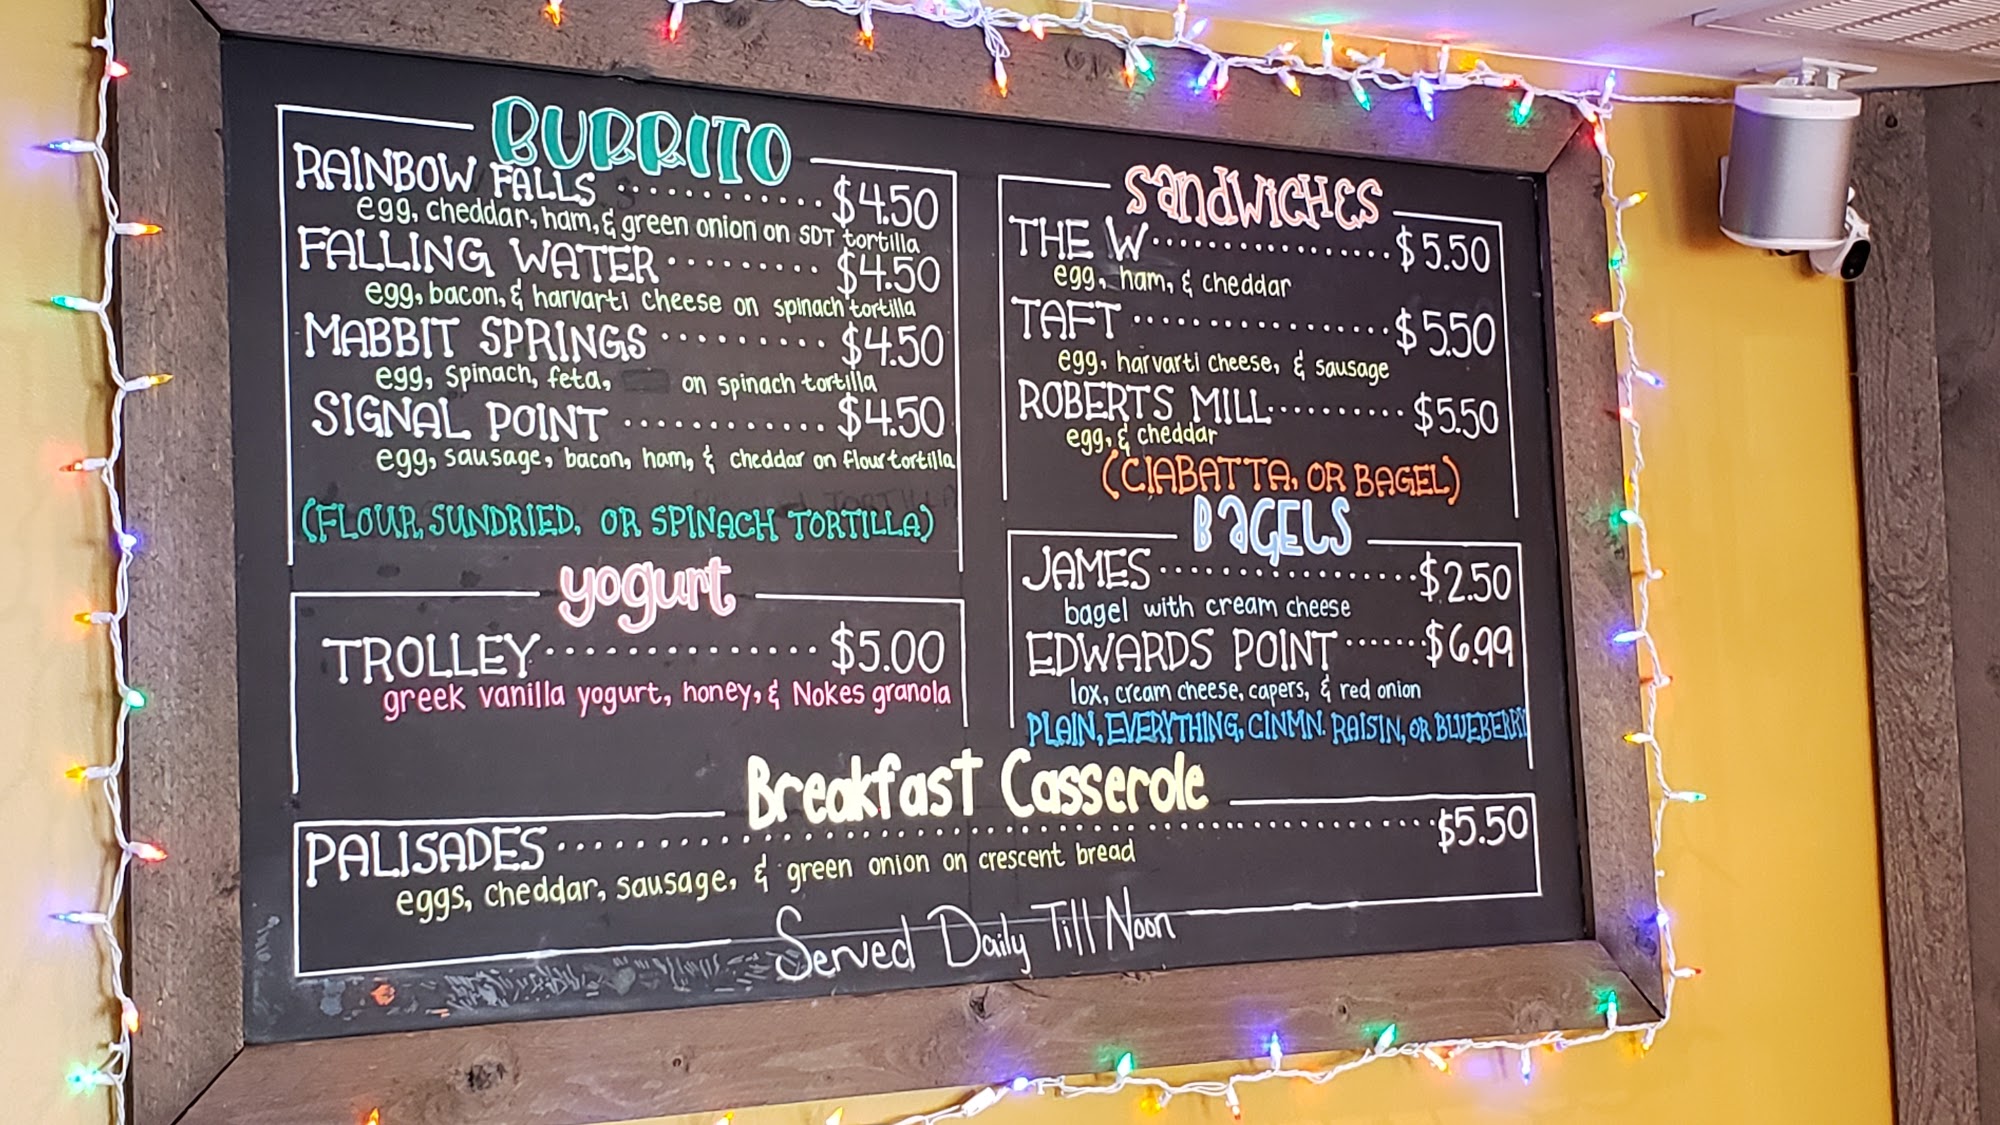 BURRITO
RAINBOW FALLS ........... $4.50
egg, cheddar, ham, & green onion on SDT tortilla
FALLING WATER ......... $4.50
egg, bacon, & harvarti cheese on spinach tortilla
MABBIT SPRINGS ......... $4.50
egg, spinach, feta, on spinach tortilla
SIGNAL POINT ............ $4.50
egg, sausage, bacon, ham, & cheddar on flour tortilla
(FLOUR, SUNDRIED, OR SPINACH TORTILLA)
yogurt
TROLLEY .............. $5.00
greek vanilla yogurt, honey, & Nokes granola
SandwicHes
THE W ................ $5.50
egg, ham, & cheddar
TAFT ................. $5.50
egg, harvarti cheese, & sausage
ROBERTS MILL .......... $5.50
egg, & cheddar
(CIABATTA, OR BAGEL)
BaGELS
JAMES ................. $2.50
bagel with cream cheese
EDWARDS POINT ...... $6.99
lox, cream cheese, capers, & red onion
PLAIN, EVERYTHING, CINMN. RAISIN, OR BLUEBERRY
Breakfast Casserole
PALISADES ................................ $5.50
eggs, cheddar, sausage, & green onion on crescent bread
Served Daily Till Noon